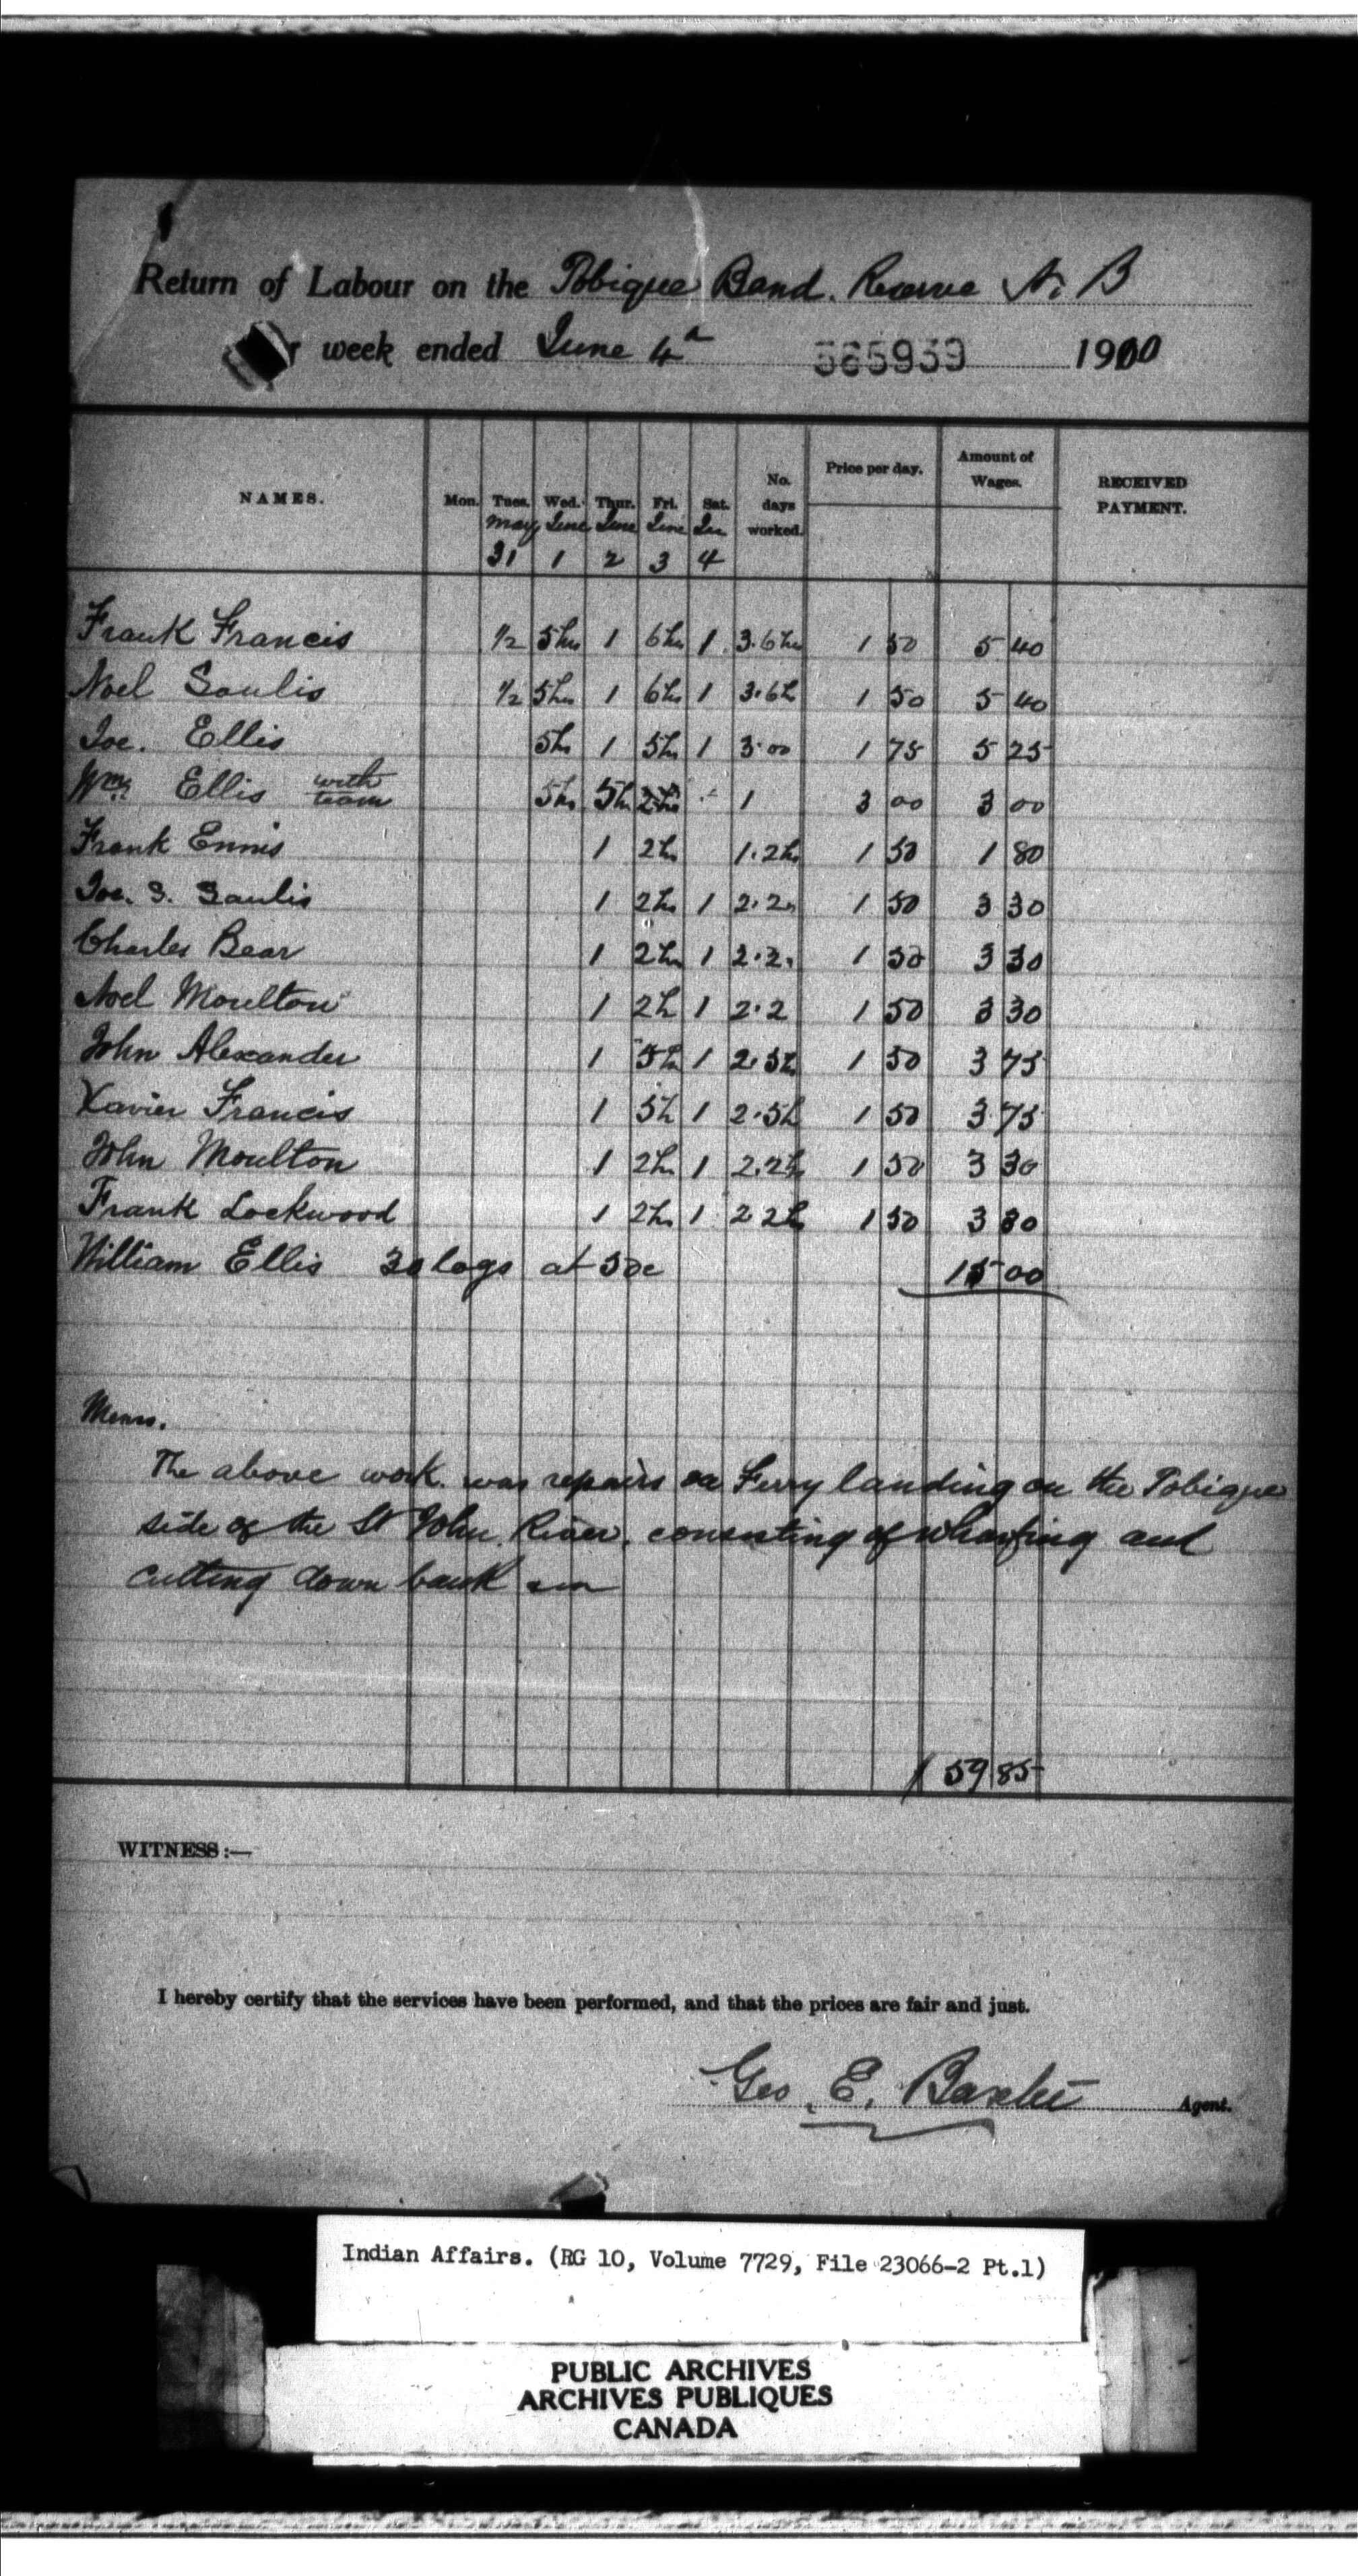 Return of Labour on the Tobique Band. Reserve N. B
week ended June 4th 565939 1910
NAMES. Mon. Tues. Wed. Thur. Fri. Sat. No. days worked. Price per day. Amount of Wages. RECEIVED PAYMENT.
May June June June Ju
31 1 2 3 4
Frank Francis 1/2 5hrs 1 6hrs 1 3.6hrs 1 50 5 40
Noel Saulis 1/2 5hrs 1 6hrs 1 3.6h 1 50 5 40
Joe. Ellis 5hs 1 5hs 1 3.00 1 75 5 25
Wm. Ellis with team 5hs 5hs 1 3 00 3 00
Frank Ennis 1 2hs 1.2hs 1 50 1 80
Joe. S. Saulis 1 2hs 1 2.2 1 50 3 30
Charles Bear 1 2hs 1 2.2 1 50 3 30
Noel Moulton 1 2h 1 2.2 1 50 3 30
John Alexander 1 5h 1 2.5h 1 50 3 75
Xavier Francis 1 5h 1 2.5h 1 50 3 75
John Moulton 1 2hs 1 2.2h 1 50 3 30
Frank Lockwood 1 2hs 1 2 2h 1 50 3 30
William Ellis 30 logs at 50c 15 00
Memo.
The above work was repairs on Ferry landing on the Tobique
side of the St John River, consisting of wharfing and
cutting down bank
59 85
WITNESS:—
I hereby certify that the services have been performed, and that the prices are fair and just.
Geo. E. Baxter Agent.
Indian Affairs. (RG 10, Volume 7729, File 23066-2 Pt.1)
PUBLIC ARCHIVES
ARCHIVES PUBLIQUES
CANADA